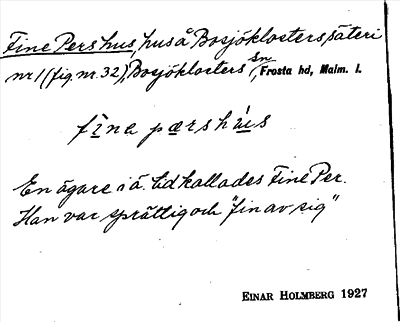 Fine Pers hus, hus å Bosjöklosters säteri
nr 1 (fig. nr. 32), Bosjöklosters sn, Frosta hd, Malm. l.
fìna pærshús
En ägare i ä. tid kallades Fine Per.
Han var sprättig och "fin av sig"
EINAR HOLMBERG 1927